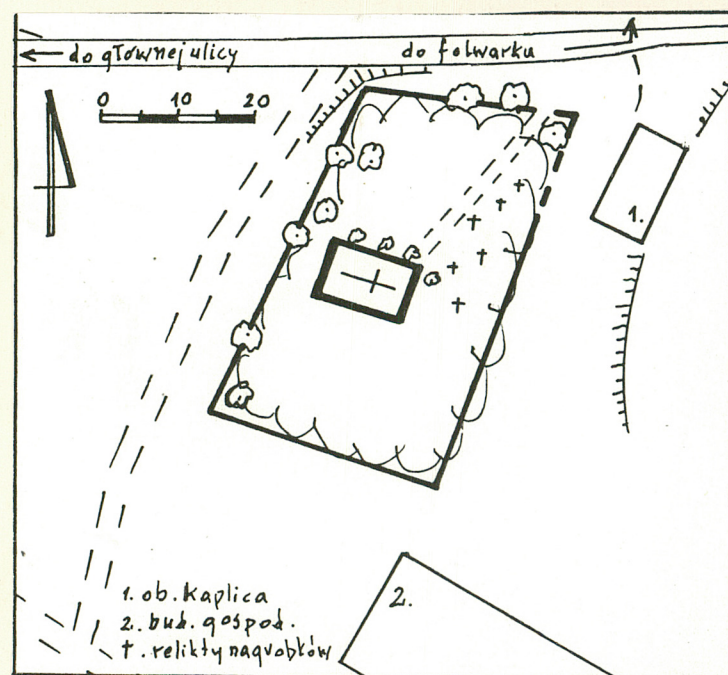 ← do głównej ulicy
do folwarku
0 10 20
1.
2.
1. ob. Kaplica
2. bud. gospod.
†. relikty nagrobków